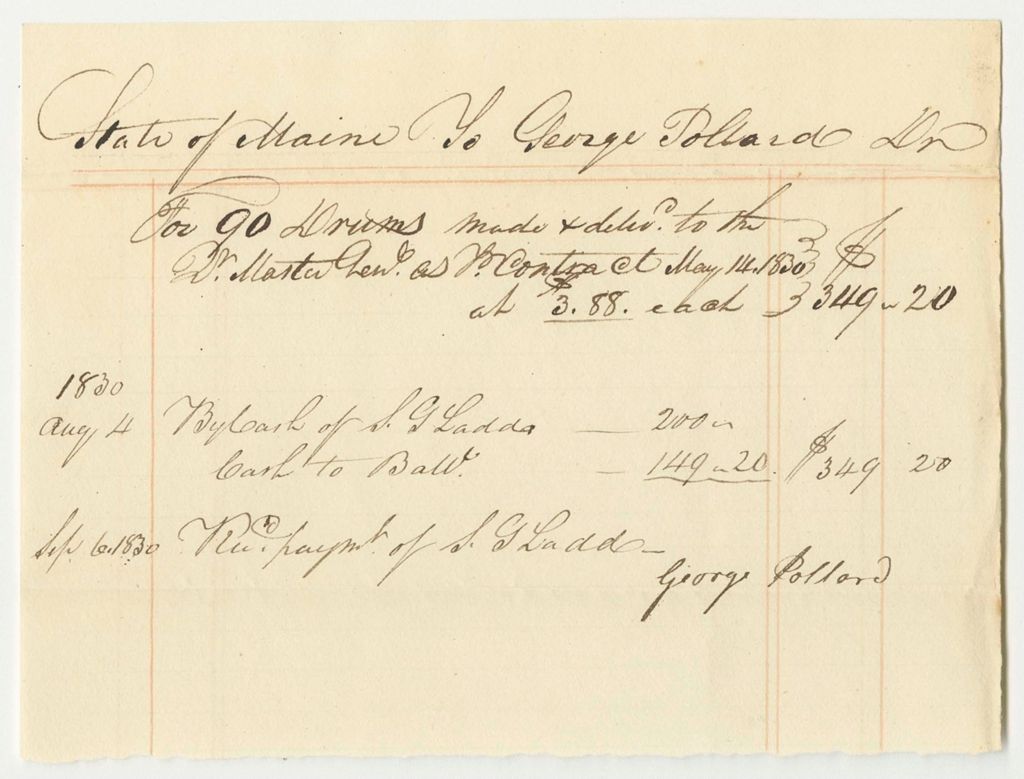 State of Maine To George Pollard Dr
For 90 Drums made & delivd. to the
Qr. Master Genl. as Pr Contract May 14. 1830 $
at $3.88. each 349 " 20
1830
Aug 4 By Cash of S. G Ladd 200 "
Cash to Balle. 149 " 20. $349 20
Sep. 6. 1830 Recd. paymt. of S. G Ladd
George Pollard